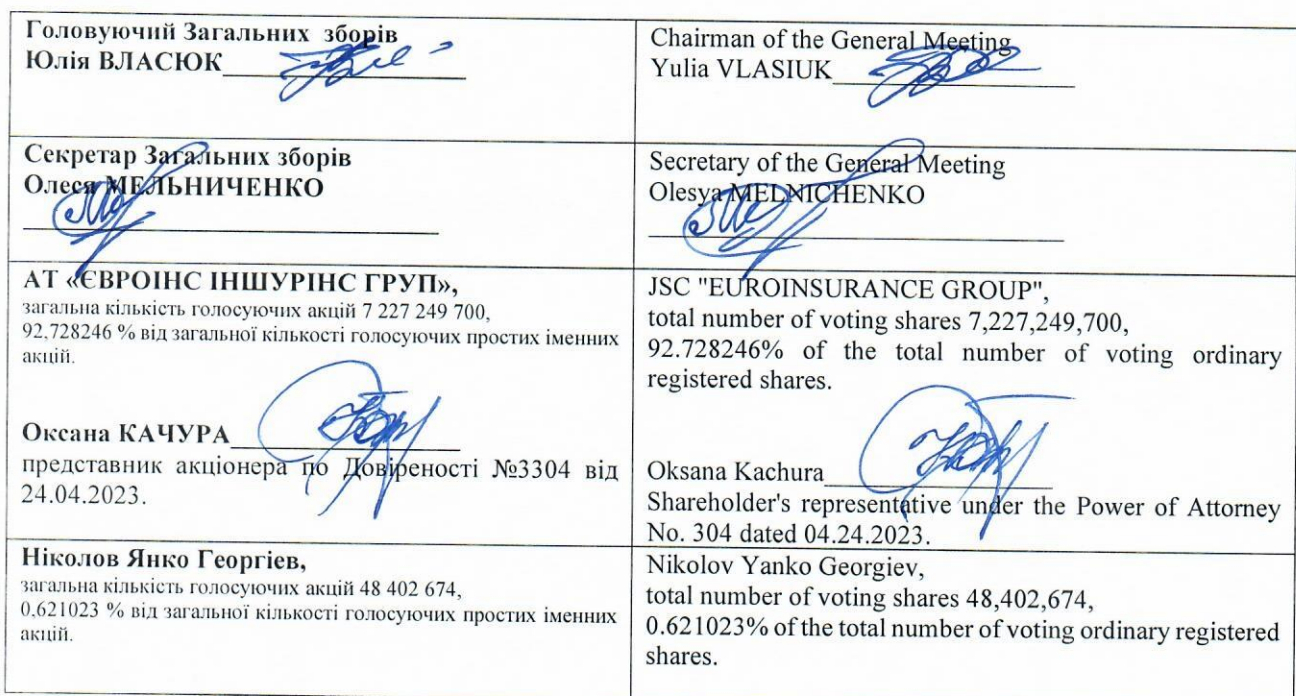 Головуючий Загальних зборів
Юлія ВЛАСЮК
Chairman of the General Meeting
Yulia VLASIUK
Секретар Загальних зборів
Олеся МЕЛЬНИЧЕНКО
Secretary of the General Meeting
Olesya MELNICHENKO
АТ «ЄВРОІНС ІНШУРІНС ГРУП»,
загальна кількість голосуючих акцій 7 227 249 700,
92,728246 % від загальної кількості голосуючих простих іменних
акцій.
Оксана КАЧУРА
представник акціонера по Довіреності №3304 від
24.04.2023.
JSC "EUROINSURANCE GROUP",
total number of voting shares 7,227,249,700,
92.728246% of the total number of voting ordinary
registered shares.
Oksana Kachura
Shareholder's representative under the Power of Attorney
No. 304 dated 04.24.2023.
Ніколов Янко Георгієв,
загальна кількість голосуючих акцій 48 402 674,
0,621023 % від загальної кількості голосуючих простих іменних
акцій.
Nikolov Yanko Georgiev,
total number of voting shares 48,402,674,
0.621023% of the total number of voting ordinary registered
shares.